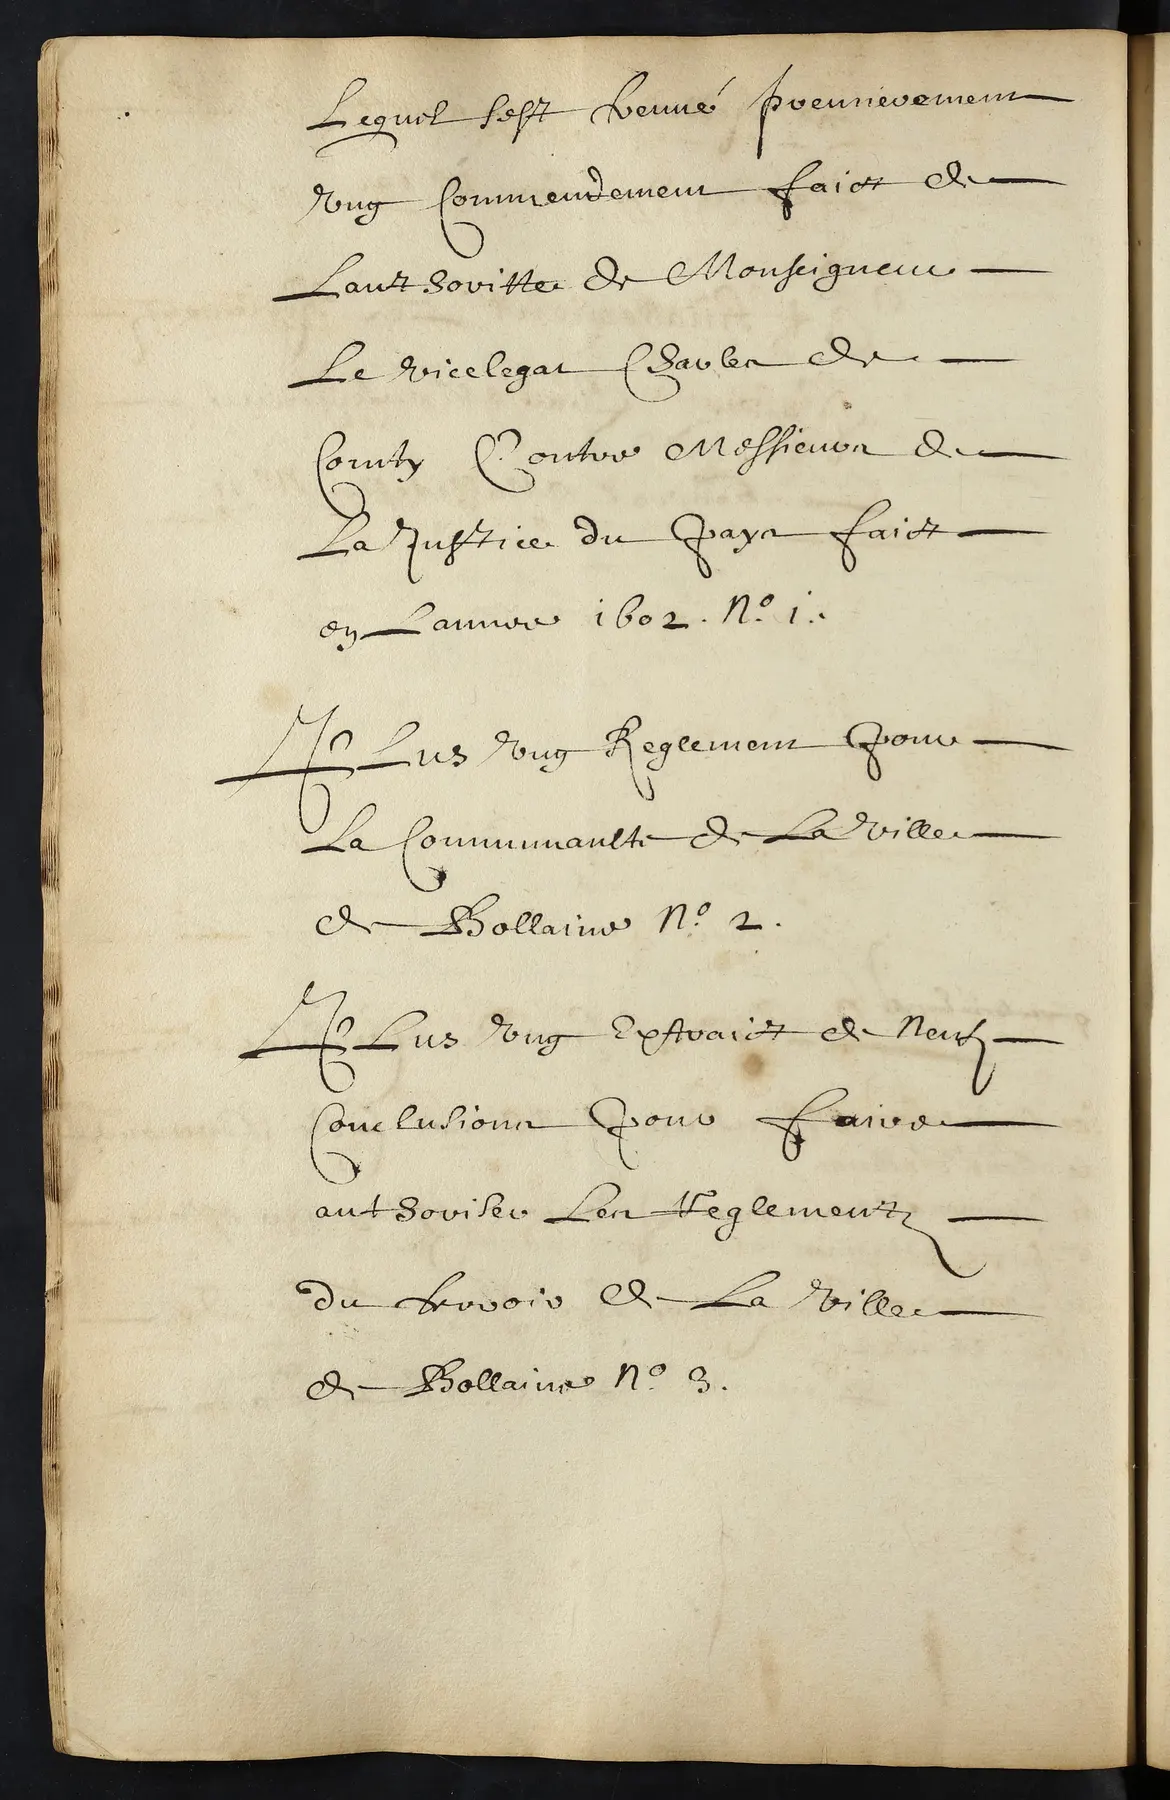 Lequel sest treuué premierement
vng Commendement faict de
Lauthoritte de Monseigneur
Le vicelegat Charles de
Comty Contre Messieurs de
La Justice du pays faict
en Lannee 1602. N.º 1.
Plus vng Reglement pour
La Communaulte de La ville
de Bollaine N.º 2.
Plus vng Extraict de neufz
Conclusions pour faire
authoriser Les reglementz
du terroir de La ville
de Bollaine N.º 3.